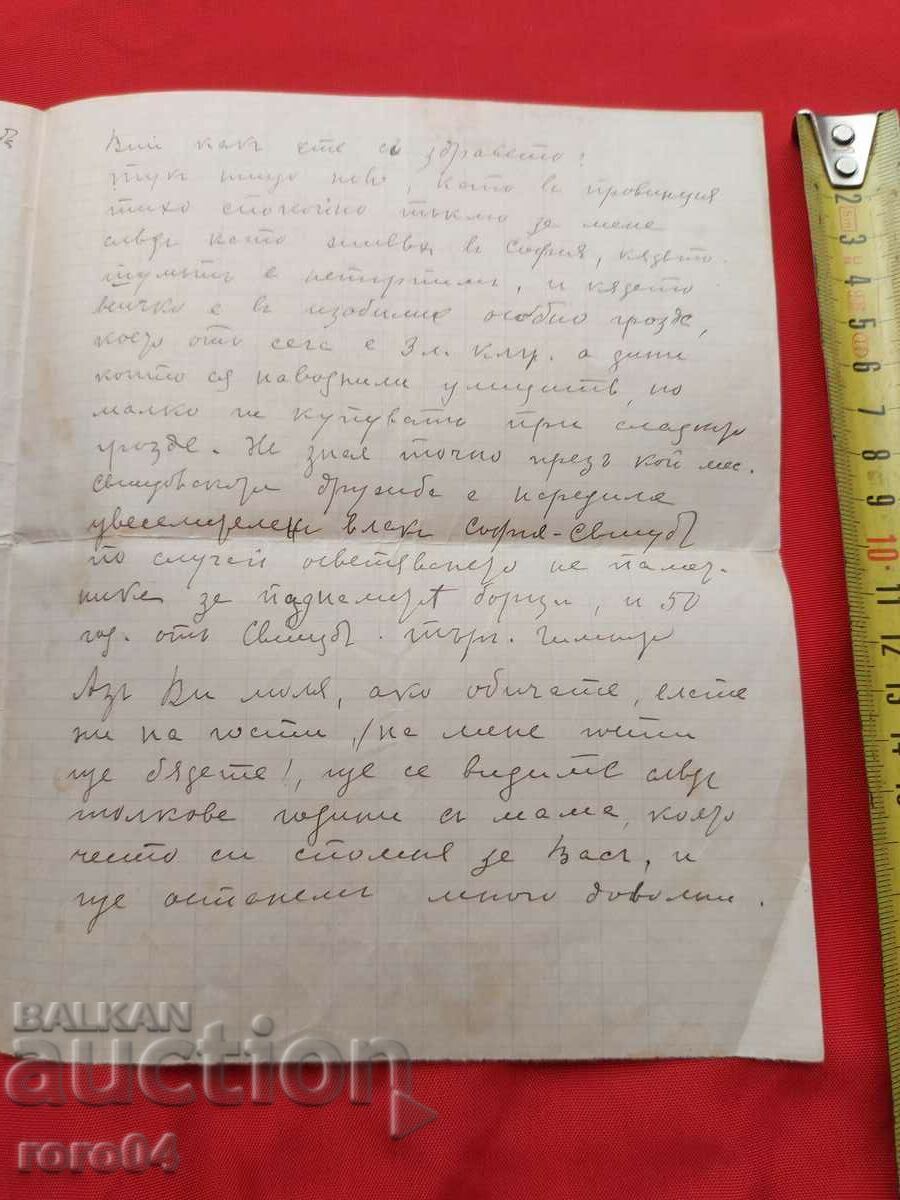 Вий какъ сте съ здравето?
тук нищо ново, като в провинция
тихо спокойно тъкмо за мене
слѣдъ като живѣх въ София, кѫдѣто
шумътъ е нетърпимъ, и кѫдето
всичко е въ изобилие особно грозде,
което отъ сега е 3 лв. клгр. а дини
които сѫ наводнили улицитѣ, но
малко ги купуватъ при сладкото
грозде. Не зная точно презъ кой мес.
свищовската дружба е наредила
увеселителен влакъ София-Свищовъ
по случай осветяването на памет-
ника за падналитѣ борци, и 50
год. отъ Свищов. Търг. Гимназия
Азъ Ви моля, ако обичате, елате
ни на гости, /на мене гости
ще бѫдете!, ще се видимъ слѣдъ
толкова години съ мама, която
често си спомня за Васъ, и
ще останемъ много доволни.
BALKAN
auction
roro04
2
3
4
5
6
7
8
9
10
11
12
13
14